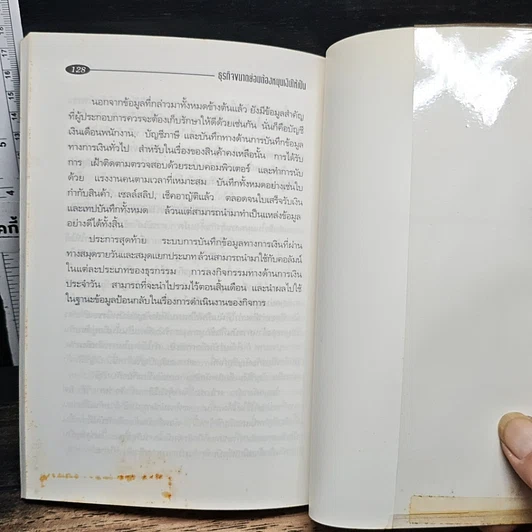 128
ธุรกิจขนาดย่อมต้องหมุนเงินให้เป็น
นอกจากข้อมูลที่กล่าวมาทั้งหมดข้างต้นแล้ว ยังมีข้อมูลสำคัญ
ที่ผู้ประกอบการควรจะต้องเก็บรักษาให้ดีด้วยเช่นกัน นั่นก็คือบัญชี
เงินเดือนพนักงาน, บัญชีภาษี และบันทึกทางด้านการบันทึกข้อมูล
ทางการเงินทั่วไป สำหรับในเรื่องของสินค้าคงเหลือนั้น การได้รับ
การ เฝ้าติดตามตรวจสอบด้วยระบบคอมพิวเตอร์ และทำการนับ
ด้วย แรงงานคนตามเวลาที่เหมาะสม บันทึกทั้งหมดอย่างเช่นใบ
กำกับสินค้า, เซลล์สลิป, เช็คอาญัติแล้ว ตลอดจนใบเสร็จรับเงิน
และเทปบันทึกทั้งหมด ล้วนแต่สามารถนำมาทำเป็นแหล่งข้อมูล
อย่างดีได้ทั้งสิ้น
ประการสุดท้าย ระบบการบันทึกข้อมูลทางการเงินที่ผ่าน
ทางสมุดรายวันและสมุดแยกประเภท ล้วนสามารถนำมาใช้กับคอลัมน์
ในแต่ละประเภทของธุรกรรม การลงกิจกรรมทางด้านการเงิน
ประจำวัน สามารถที่จะนำไปรวมไว้ตอนสิ้นเดือน และนำผลไปใช้
ในฐานะข้อมูลป้อนกลับในเรื่องการดำเนินงานของกิจการ
13
14
15
16
17